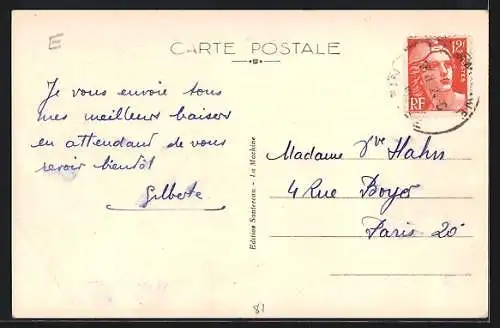 E
CARTE POSTALE
12F
POSTES
RF
Je vous envoie tous
mes meilleurs baisers
en attendant de vous
revoir bientôt
Gilberte
Edition Santereau - La Machine
Madame Vve Hahn
4 Rue Boyer
Paris 20e
81